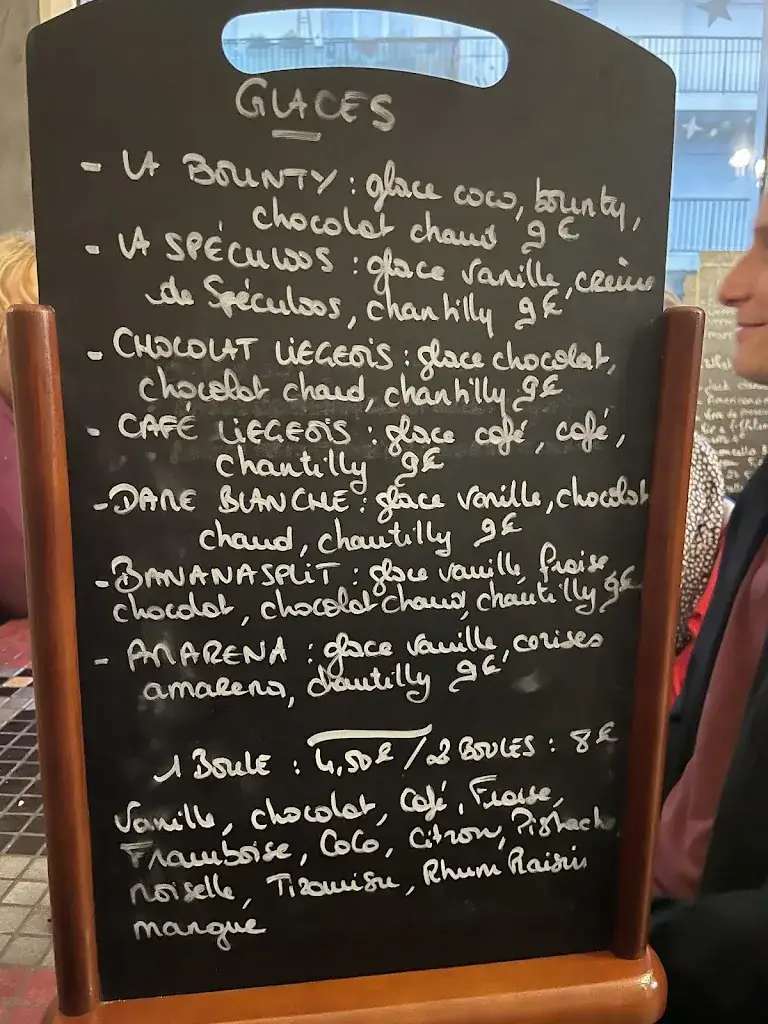 GLACES
- LA BOUNTY : glace coco, bounty,
chocolat chaud 9€
- LA SPÉCULOOS : glace vanille, crème
de Spéculoos, chantilly 9€
- CHOCOLAT LIEGEOIS : glace chocolat,
chocolat chaud, chantilly 9€
- CAFÉ LIEGEOIS : glace café, café,
chantilly 9€
- DAME BLANCHE : glace vanille, chocolat
chaud, chantilly 9€
- BANANASPLIT : glace vanille, fraise,
chocolat, chocolat chaud, chantilly 9€
- AMARENA : glace vanille, cerises
amarena, chantilly 9€
1 BOULE : 4,50€ / 2 BOULES : 8€
Vanille, chocolat, Café, Fraise,
Framboise, Coco, Citron, Pistache,
noisette, Tiramisu, Rhum Raisin
mangue